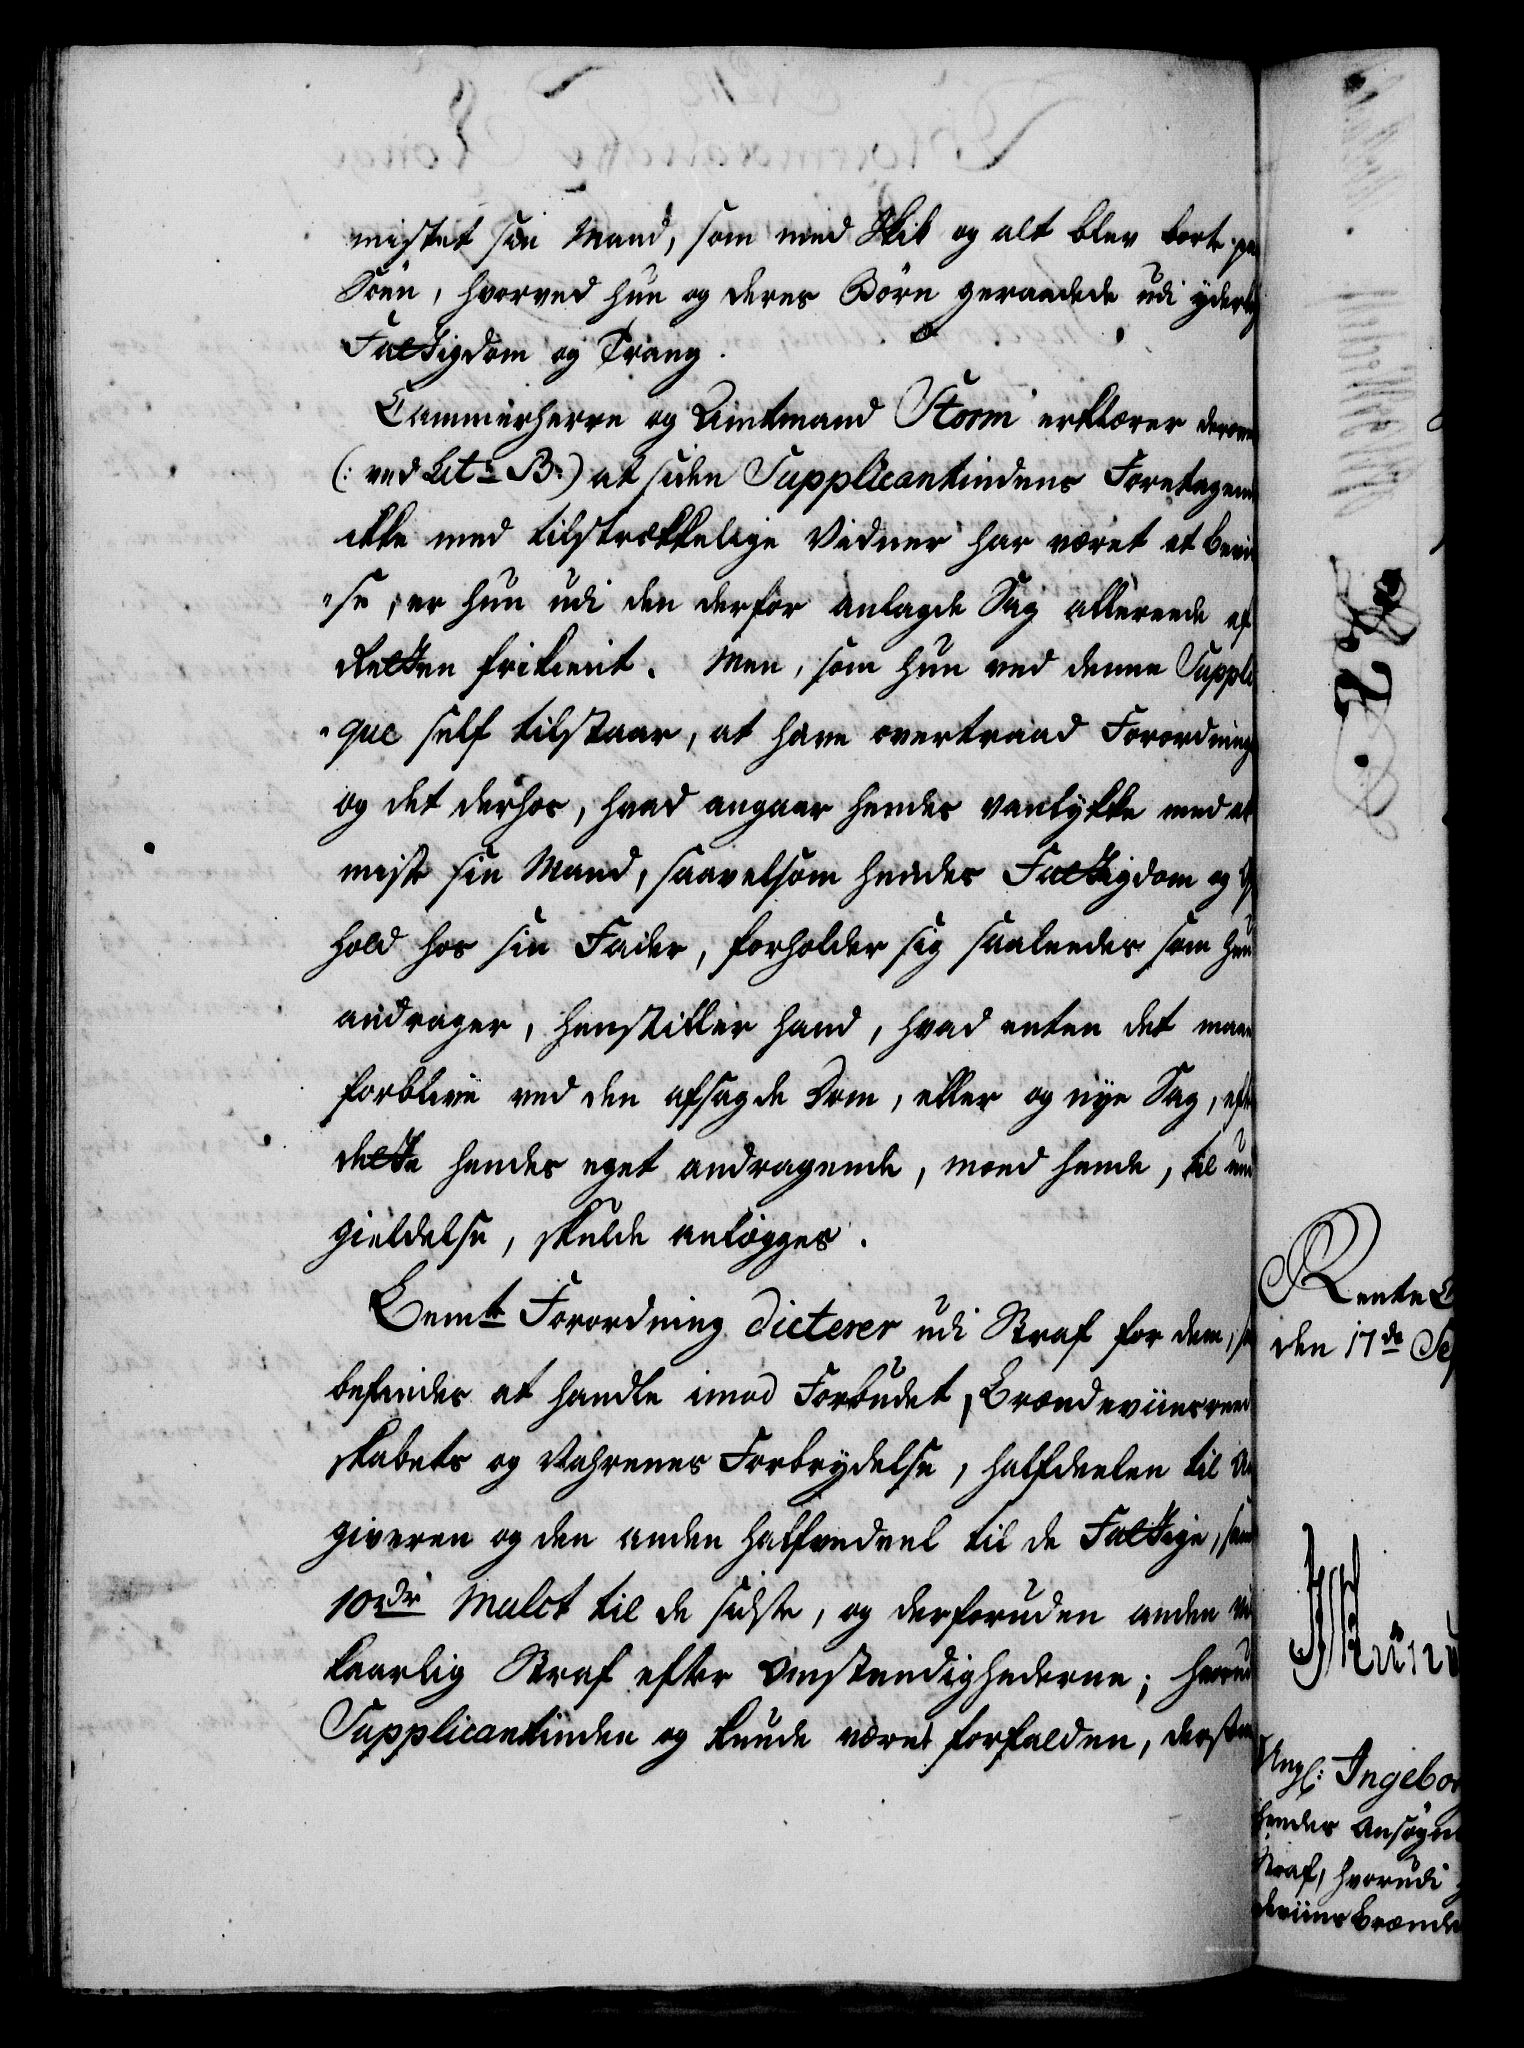 mistet sin Mand, som med Skib og alt blev borte paa
Söen, hvorved hun og deres Börn geraadede udi yderlig
Fattigdom og Trang.
Cammerherre og Amtmand Storm erklærer derover
(: ved Litr B:) at siden Supplicantindens Foretagende
ikke med tilstrækkelige Vidner har været at bevi-
"se, er hun udi den derfor anlagde Sag allereede af
Retten frikient. Men, som hun ved denne Suppli-
"que self tilstaar, at have overtraad Forordning
og det derhos, hvad angaar hendes vanlykke med at
miste sin Mand, saavelsom hendes Fattigdom og Op-
hold hos sin Fader, forholder sig saaleedes som hun
andrager, henstiller hand, hvad enten det maae
forblive ved den afsagde Dom, eller og nye Sag, efter
dette hendes eget andragende, moed hende, til und-
gieldelse, skulde anlægges.
Bemte Forordning dicterer udi Straf for dem, som
befindes at handle imod Forbudet, Brændeviinsreed-
skabets og Vahrenes Forbrydelse, halfdeelen til An-
giveren og den anden halfvedeel til de Fattige, samt
10 rdr Mulct til de sidste, og derforuden anden vil-
kaarlig Straf efter Omstændighederne; hvorudi
Supplicantinden og kunde været forfalden, dersom
Rente C
den 17de Sep
Angl: Ingebor
hendes Ansøgn
Straf, hvorudi
deviins Brænde